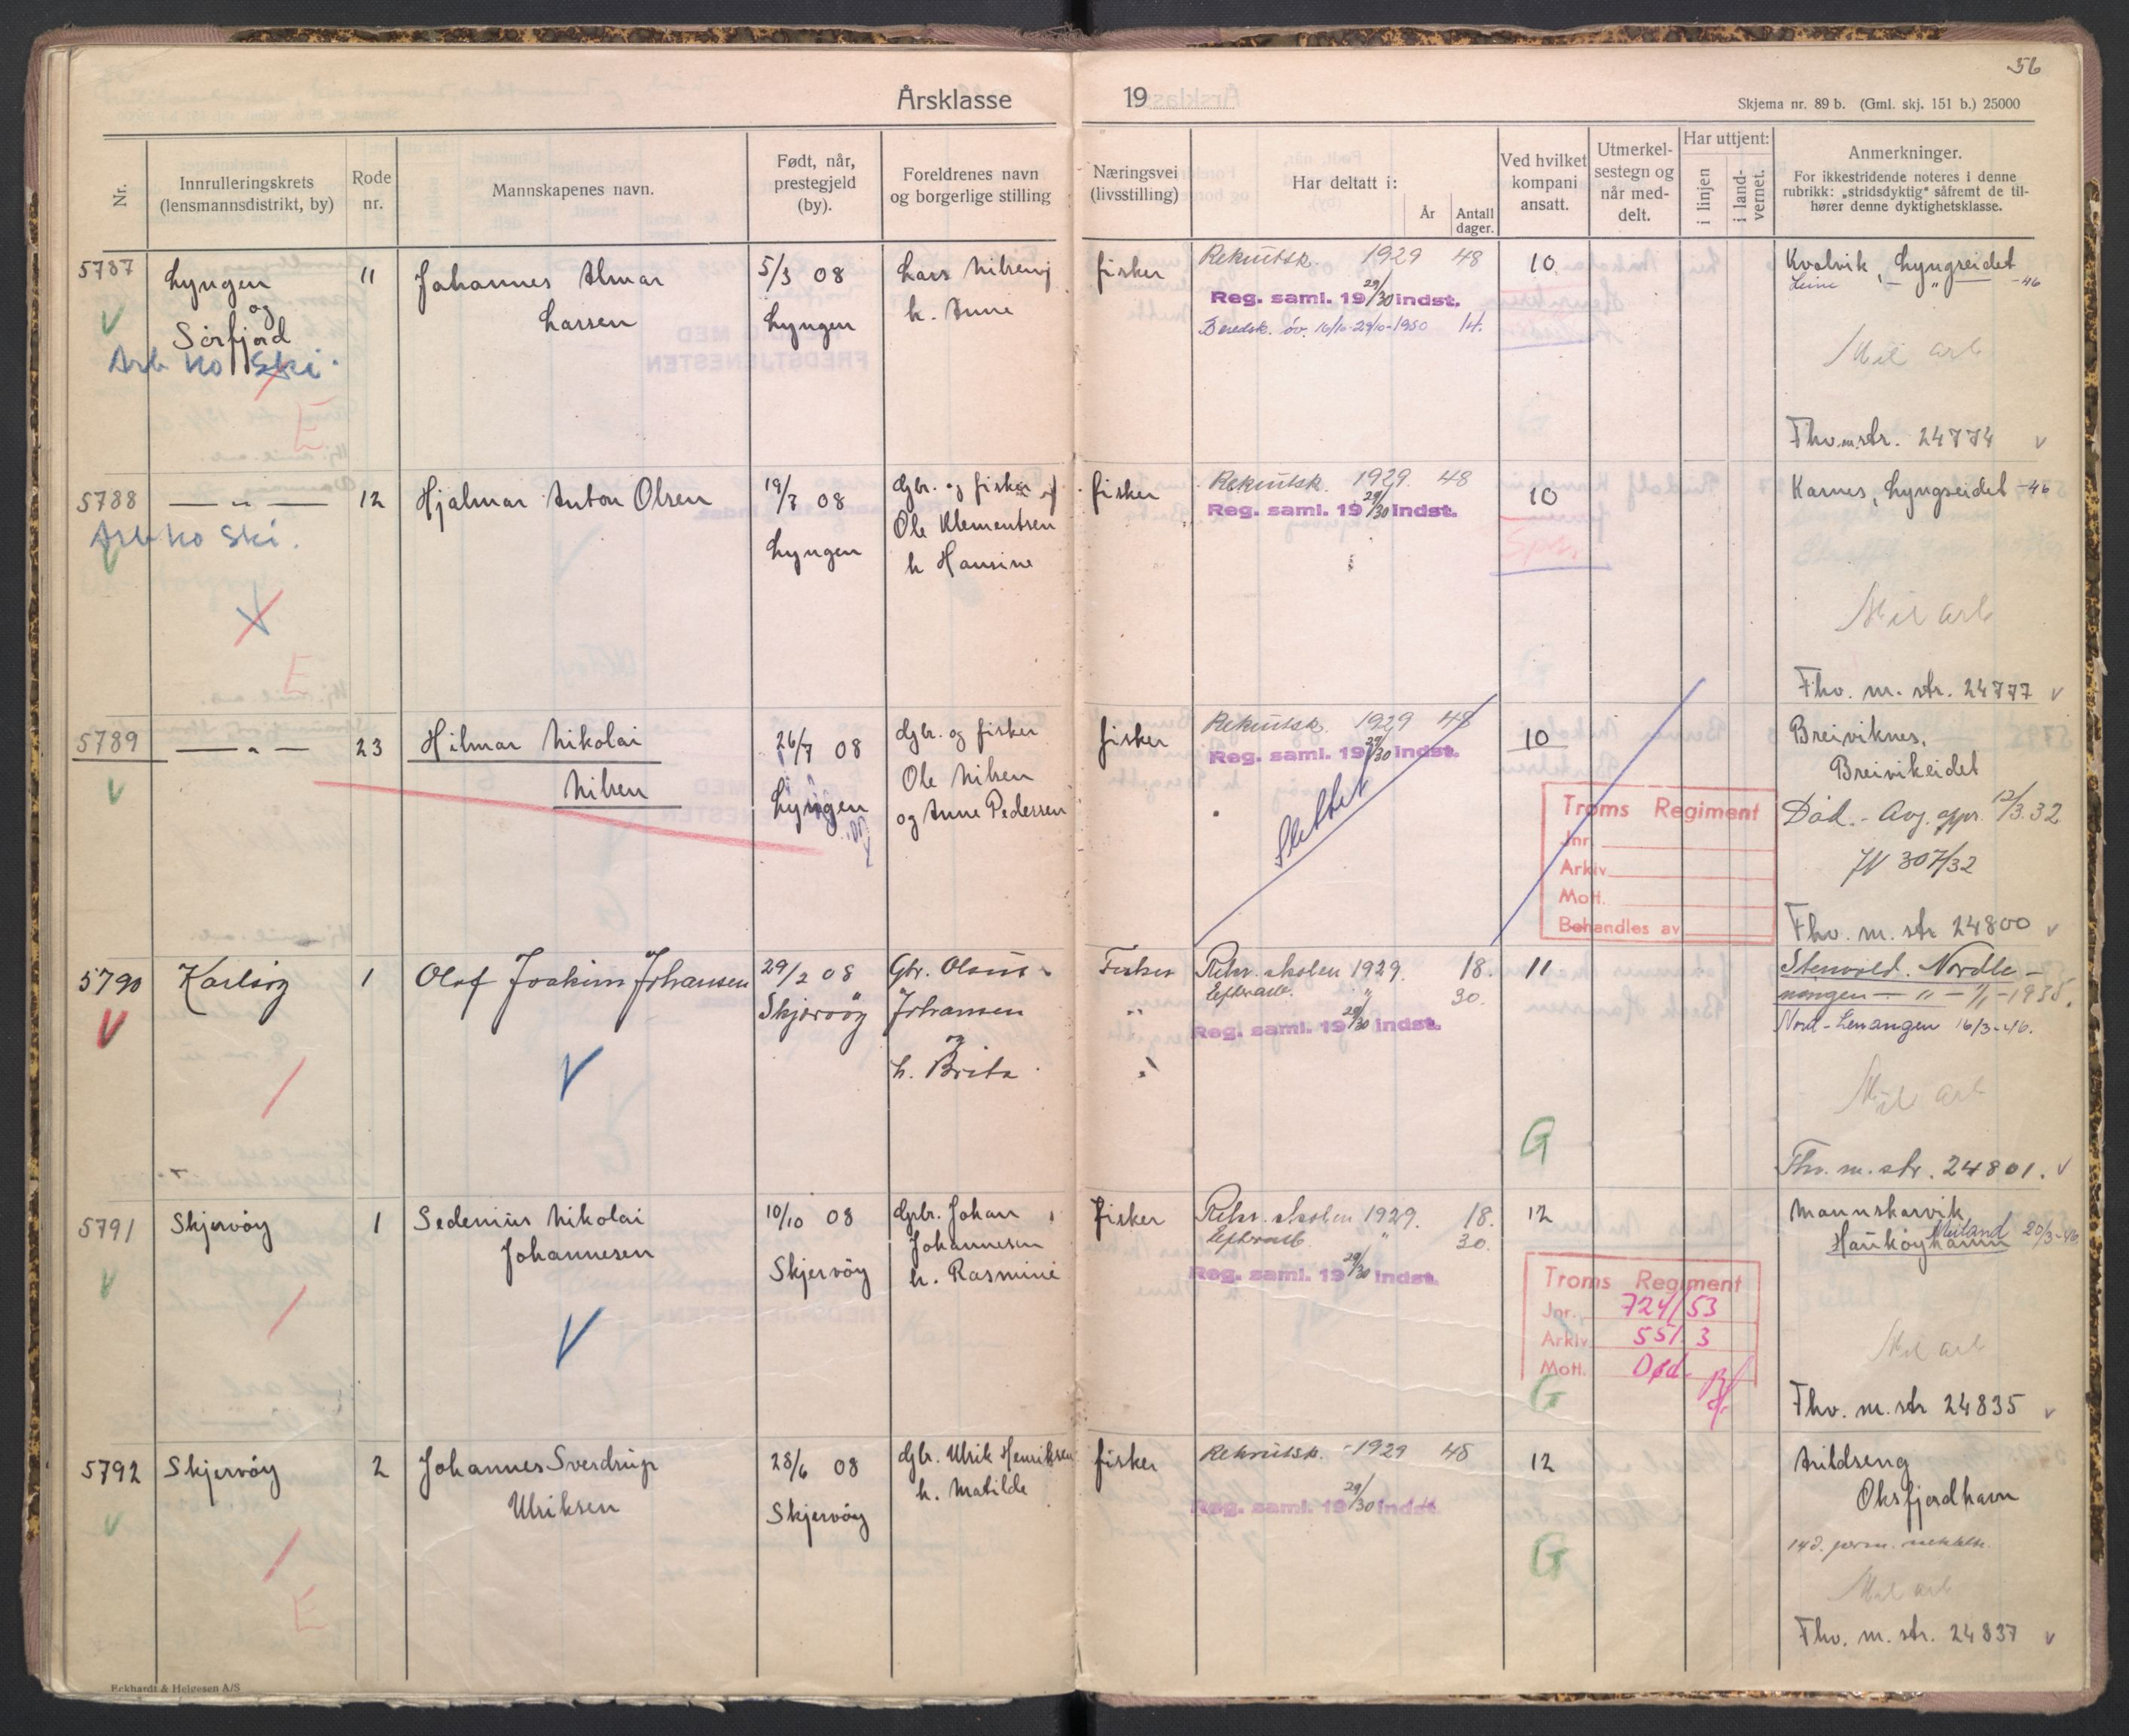 56
Årsklasse 19
Skjema nr. 89 b. (Gml. skj. 151 b.) 25000
Nr.
Innrulleringskrets
(lensmannsdistrikt, by)
Rode
nr.
Mannskapenes navn.
Født, når,
prestegjeld
(by).
Foreldrenes navn
og borgerlige stilling
Næringsvei
(livsstilling)
Har deltatt i:
År
Antall
dager.
Ved hvilket
kompani
ansatt.
Utmerkel-
sestegn og
når med-
delt.
Har uttjent:
i linjen
i land-
vernet.
Anmerkninger.
For ikkestridende noteres i denne
rubrikk: „stridsdyktig" såfremt de til-
hører denne dyktighetsklasse.
5787
Lyngen
og
Sörfjord
Arb ko Ski.
E
11
Johannes Almar
Larsen
5/3 08
Lyngen
Lars Nilsen
h. Anne
fisker
Rekrutsk. 1929 48
Reg. saml. 19 29/30 indst.
Beredsk. öv. 16/10-29/10-1950 14.
10
Kvalvik, Lyngseidet
-46
Mil arb
Fhv. m. str. 24774 v
5788
— „ —
Arb ko Ski.
E
12
Hjalmar Anton Olsen
19/7 08
Lyngen
Gbr. og fisker
Ole Klementsen
h Hansine
fisker
Rekrutsk. 1929. 48
Reg. saml. 19 29/30 indst.
10
Karnes, Lyngseidet -46
Mil arb
Fhv. m. str. 24777 v
5789
— „ —
23
Hilmar Nikolai
Nilsen
26/7 08
Lyngen
Gbr. og fisker
Ole Nilsen
og Anne Pedersen
fisker
Rekrutsk. 1929 48
Reg. saml. 19 29/30 indst.
Slettet
10
Troms Regiment
Jnr.
Arkiv
Mott.
Behandles av
Breiviknes,
Breivikeidet
Död. - Avg. oppr. 12/3.32
JN 307/32
Fhv. m. str 24800 v
5790
Karlsöy
1
Olaf Joakim Johansen
29/2 08
Skjervöy
Gbr. Olaus
Johansen
og
h. Brita
Fisker
Rekr. skolen 1929. 18.
Eftersk. „ 30.
Reg. saml. 19 29/30 indst.
11
G
Stenvold. Nordle-
ningen — „ — 1/1-1935.
Nord-Lenangen 16/3-46.
Mil arb
Fhv. m. str. 24801. v
5791
Skjervöy
1
Sedenius Nikolai
Johannesen
10/10 08
Skjervöy
Gbr. Johan
Johannesen
h. Rasmine
fisker
Rekr. skolen 1929. 18.
Eftersk. „ 30.
Reg. saml. 19 29/30 indst.
12
Troms Regiment
Jnr. 724/53
Arkiv 551.3
Mott. Død.
G
Mannskarvik
Hauköyhamn
Meiland 20/3-46
Mil arb
Fhv. m. str 24835 v
5792
Skjervöy
E
2
Johannes Sverdrup
Ulriksen
28/6 08
Skjervöy
Gbr. Ulrik Henriksen
h. Matilde
fisker
Rekrutsk. - 1929 48
Reg. saml. 19 29/30 indst
12
G
Arildseng
Oksfjordhavn
Mil arb
Fhv. m. str. 24837 v
Eckhardt & Helgesen A/S